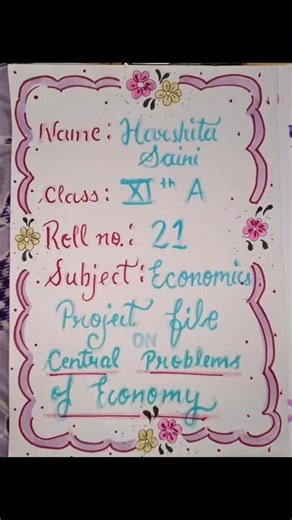 Name: Harshita
Saini
Class: XIth A
Roll no.: 21
Subject: Economics
Project file
ON
Central Problems
of Economy